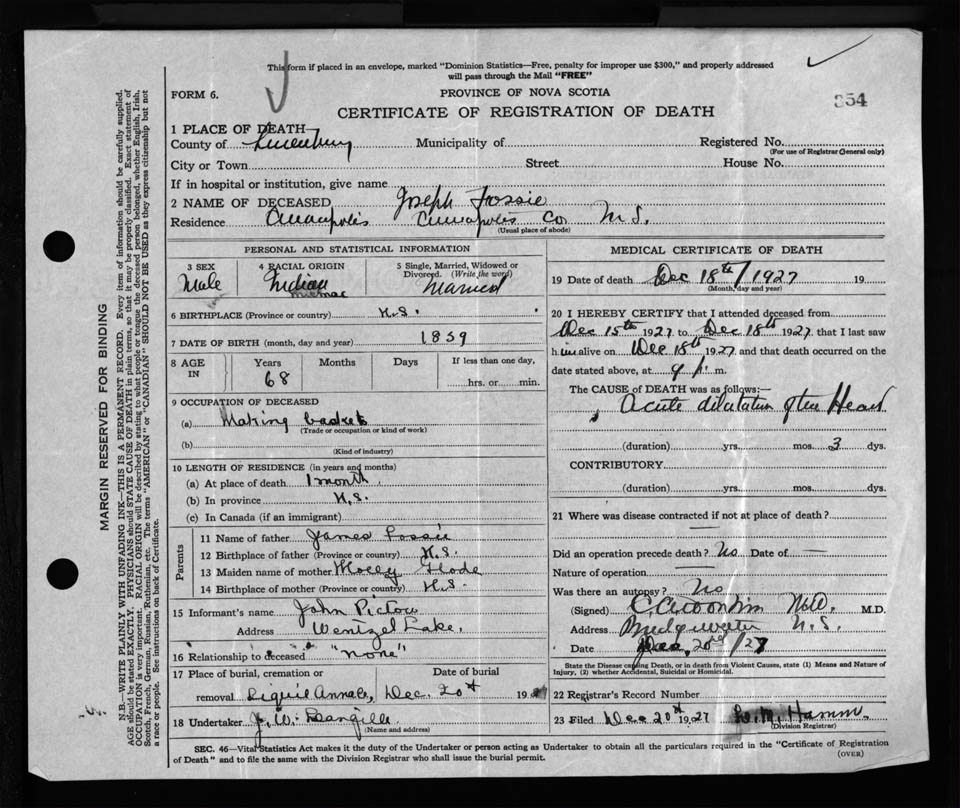 This form if placed in an envelope, marked "Dominion Statistics—Free, penalty for improper use $300," and properly addressed
will pass through the Mail "FREE"
FORM 6.
PROVINCE OF NOVA SCOTIA
354
CERTIFICATE OF REGISTRATION OF DEATH
1 PLACE OF DEATH—
County of Lunenburg Municipality of Registered No.
(For use of Registrar General only)
City or Town Street House No.
If in hospital or institution, give name
2 NAME OF DECEASED Joseph Fossie
Residence Annapolis Annapolis Co N.S.
(Usual place of abode)
PERSONAL AND STATISTICAL INFORMATION
3 SEX
Male
4 RACIAL ORIGIN
Indian
Micmac
5 Single, Married, Widowed or
Divorced. (Write the word)
Married
6 BIRTHPLACE (Province or country) N.S.
7 DATE OF BIRTH (month, day and year) 1859
8 AGE
IN
Years
68
Months
Days
If less than one day,
hrs. or min.
9 OCCUPATION OF DECEASED
(a) Making baskets
(Trade or occupation or kind of work)
(b)
(Kind of industry)
10 LENGTH OF RESIDENCE (in years and months)
(a) At place of death 1 month.
(b) In province N.S.
(c) In Canada (if an immigrant)
Parents
11 Name of father James Fossie
12 Birthplace of father (Province or country) N.S.
13 Maiden name of mother Molly Glode
14 Birthplace of mother (Province or country) N.S.
15 Informant's name John Pictou
Address Wentzel Lake.
16 Relationship to deceased "none"
17 Place of burial, cremation or Date of burial
removal Annap, Dec. 20th 19
18 Undertaker J. W.
(Name and address)
MEDICAL CERTIFICATE OF DEATH
19 Date of death Dec 18th/1927 19
(Month, day and year)
20 I HEREBY CERTIFY that I attended deceased from
Dec 15th 1927 to Dec 18th 1927 that I last saw
h im alive on Dec 18th 1927 and that death occurred on the
date stated above, at 9 p. m.
The CAUSE of DEATH was as follows:—
Acute dilatation of the Heart
(duration) yrs. mos. 3 dys.
CONTRIBUTORY
(duration) yrs. mos. dys.
21 Where was disease contracted if not at place of death?
—
Did an operation precede death? No Date of —
Nature of operation —
Was there an autopsy? No
(Signed) M.D. M.D.
Address Bridgewater N.S.
Date Dec. 20th/27
State the Disease causing Death, or in death from Violent Causes, state (1) Means and Nature of
Injury, (2) whether Accidental, Suicidal or Homicidal.
22 Registrar's Record Number
23 Filed Dec 20th 1927 L. M. Hamm.
(Division Registrar)
SEC. 46—Vital Statistics Act makes it the duty of the Undertaker or person acting as Undertaker to obtain all the particulars required in the "Certificate of Registration
of Death" and to file the same with the Division Registrar who shall issue the burial permit.
(OVER)
MARGIN RESERVED FOR BINDING
N.B.—WRITE PLAINLY WITH UNFADING INK—THIS IS A PERMANENT RECORD. Every item of information should be carefully supplied.
AGE should be stated EXACTLY. PHYSICIANS should STATE CAUSE OF DEATH in plain terms, so that it may be properly classified. Exact statement of
OCCUPATION is very important. RACIAL ORIGIN will be described by stating to what people or tongue the deceased person belonged, whether English, Irish,
Scotch, French, German, Russian, Ruthenian, etc. The terms "AMERICAN" or "CANADIAN" SHOULD NOT BE USED as they express citizenship but not
a race or people. See instructions on back of Certificate.